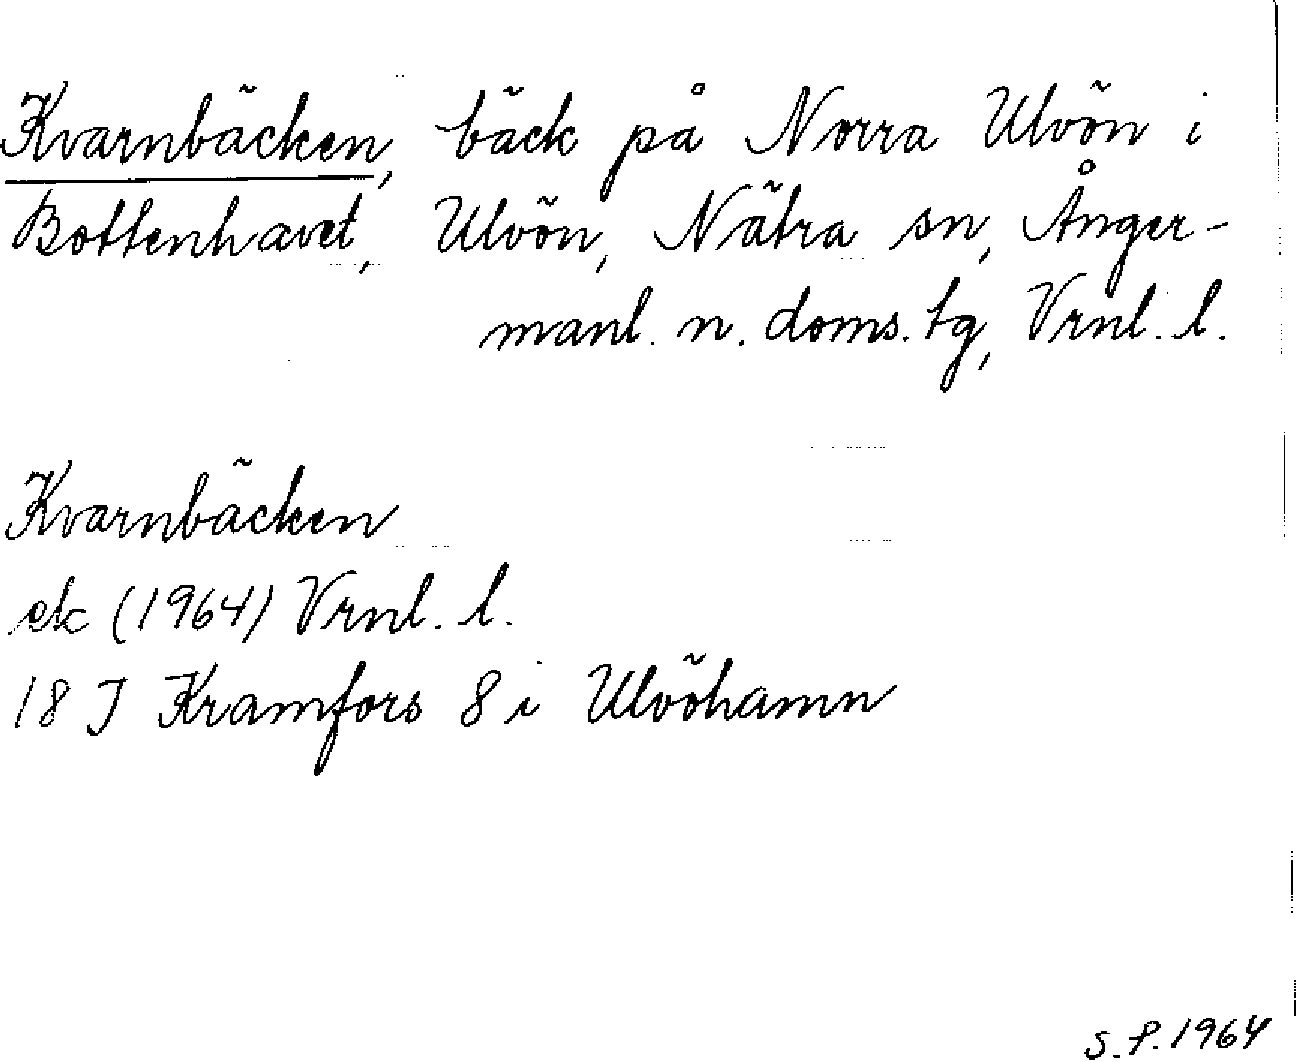 Kvarnbäcken, bäck på Norra Ulvön i
Bottenhavet, Ulvön, Nätra sn, Ånger-
manl. n. doms. tg, Vrnl. l.
Kvarnbäcken
ek (1964) Vrnl. l.
18 J Kramfors 8 i Ulvöhamn
S. P. 1964